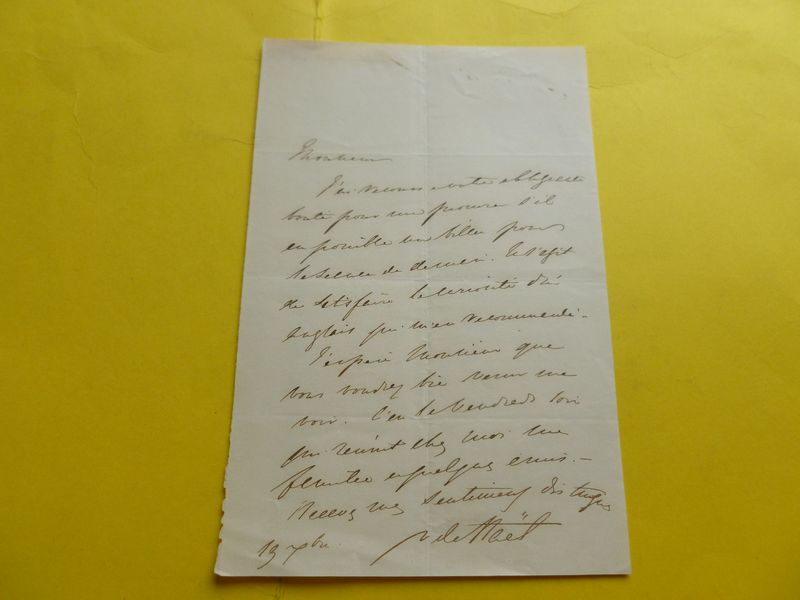 Monsieur
J'ai recours a votre obligeante
bonté pour me procurer s'il
est possible un billet pour
la séance de demain. Il s'agit
de satisfaire la curiosité d'un
anglais qui m'est recommandé.
J'espere Monsieur que
vous voudrez bien venir me
voir. C'est le Vendredi soir
que réunit chez moi ma
famille et quelques amis. -
Recevez mes sentiments distingués
19 xbre.